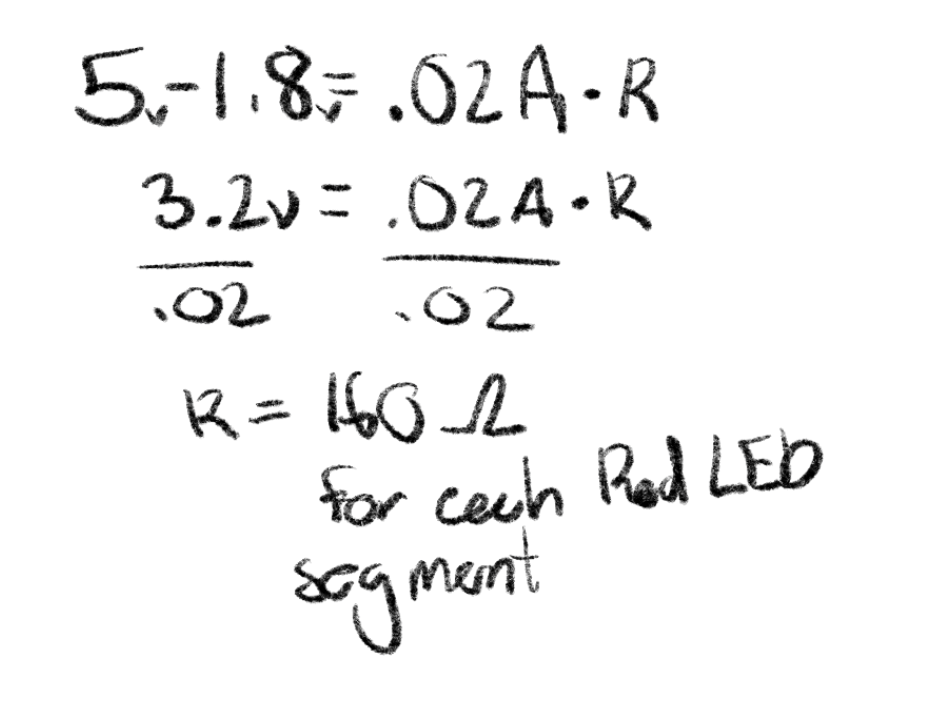 5v-1.8v= .02A·R
3.2v = .02A·R
.02 .02
R = 160 Ω
for each Red LED
segment